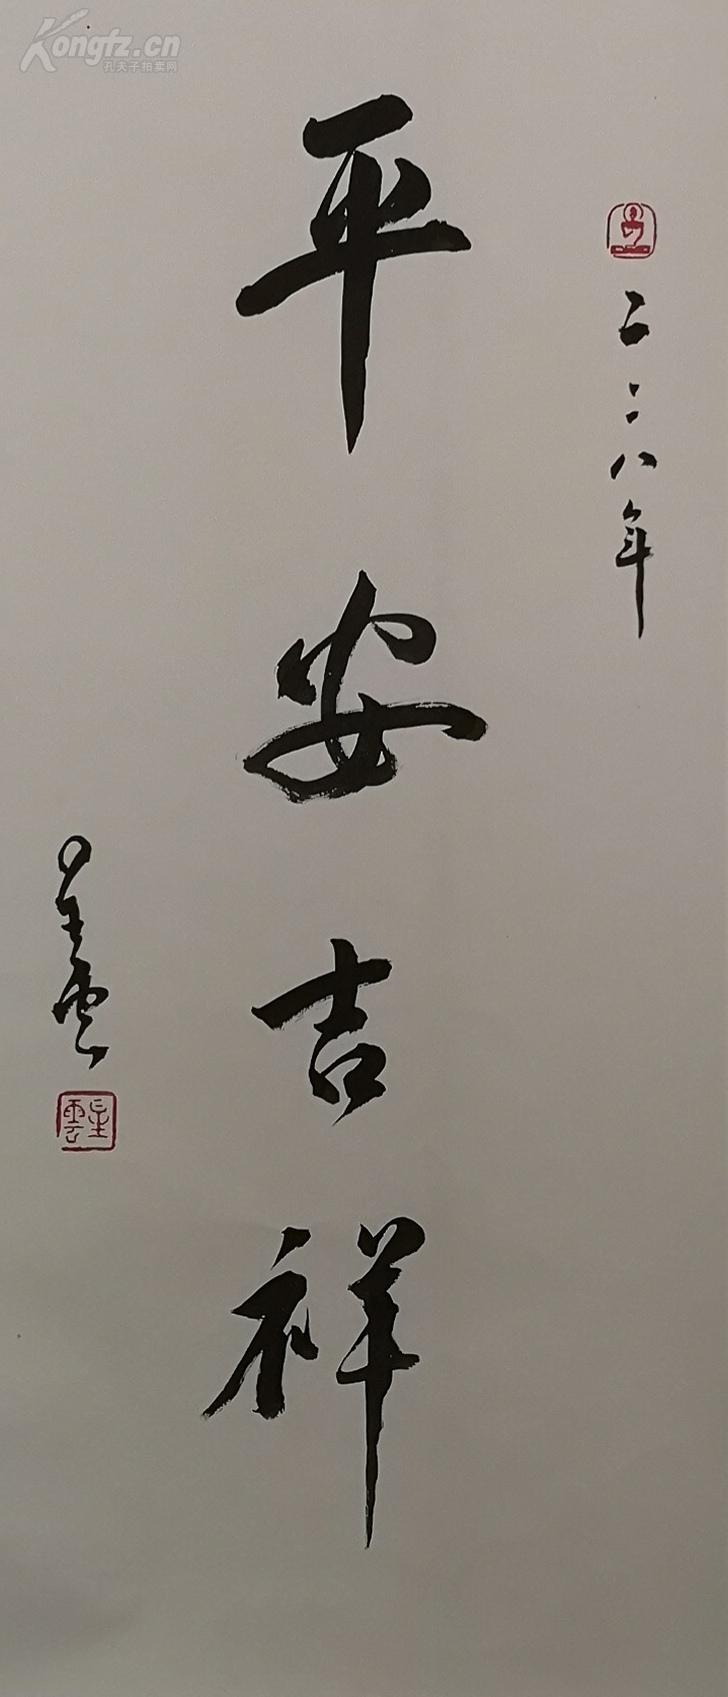 Kongfz.cn
孔夫子拍卖网
二〇〇八年
平安吉祥
星雲
星雲